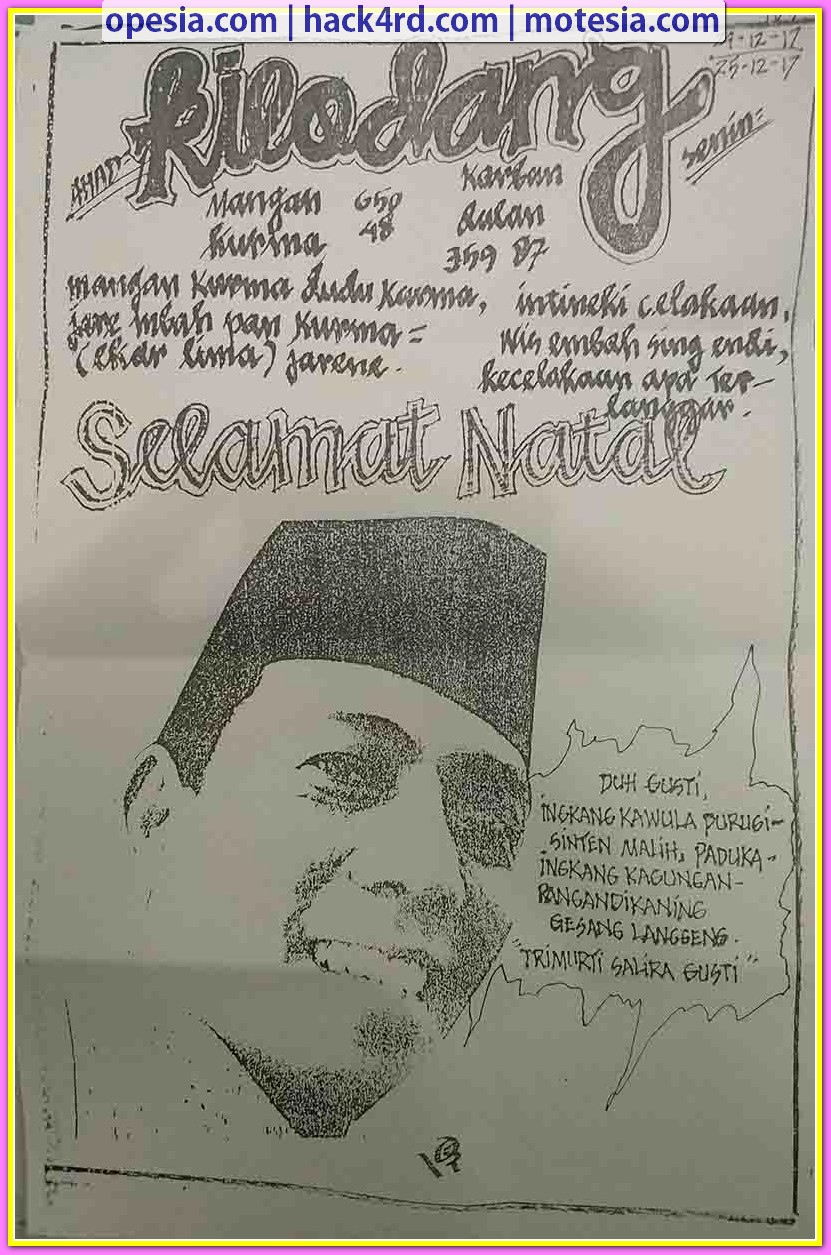 opesia.com | hack4rd.com | motesia.com
-12-17
25-12-17
Kilodang
AHAD=
Senin=
Mangan 650
Kurma 48
Karban
dalan
359 87
Mangan Kurma dudu Karma,
jare mbah pan Kurma=
(ekar lima) jarene.
intineki celakaan,
Nis embah sing endi,
kecelakaan apa Ter-
langgar.
Selamat Natal
DUH GUSTI,
INGKANG KAWULA PURUGI-
SINTEN MALIH, PADUKA-
INGKANG KAGUNGAN-
PANGANDIKANING
GESANG LANGGENG.
"TRIMURTI SALIRA GUSTI"